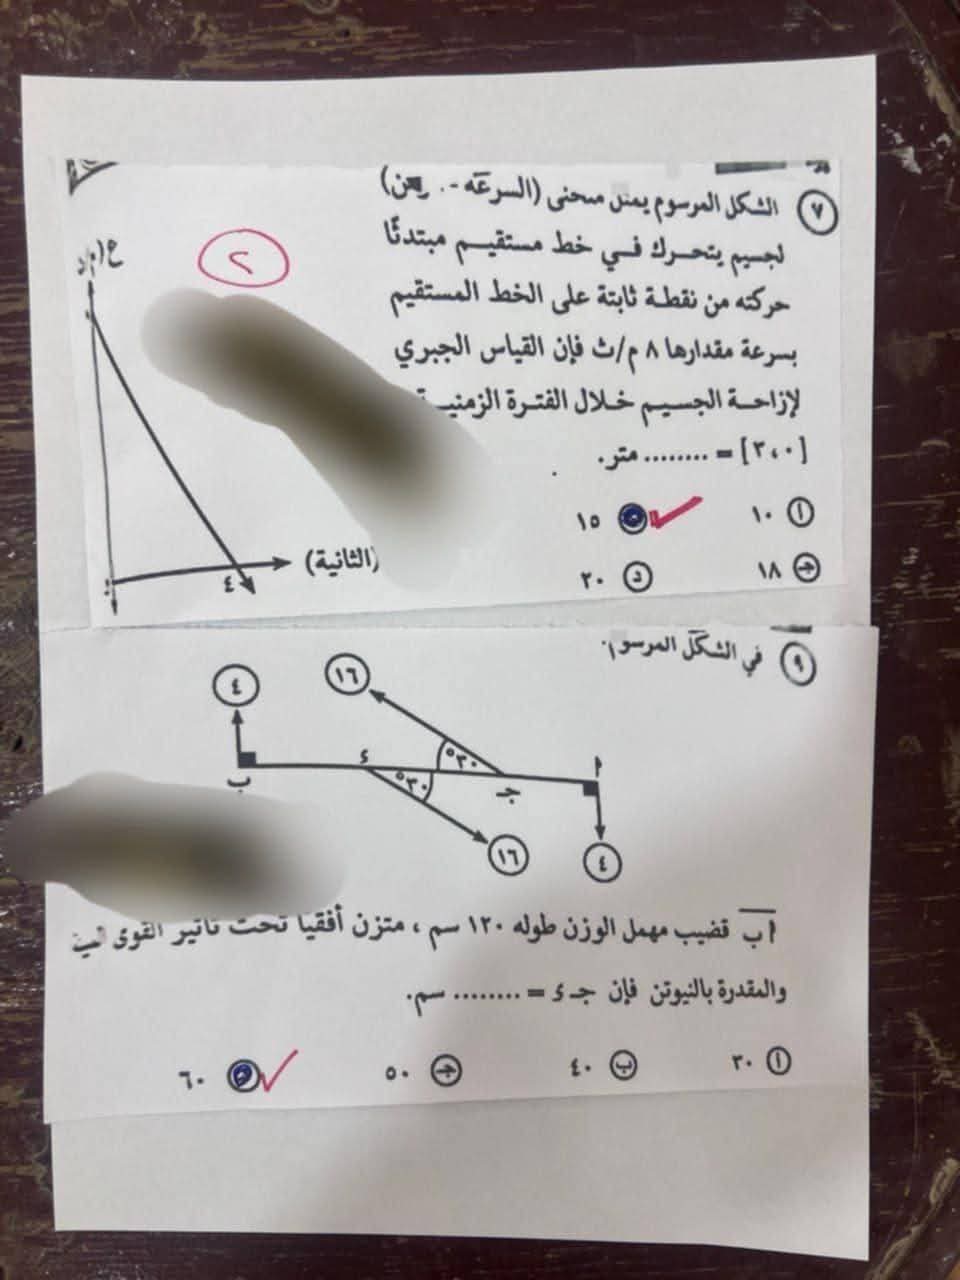 ٧ الشكل المرسوم يمثل منحنى (السرعة -
لجسيم يتحرك في خط مستقيم مبتدئًا
حركته من نقطة ثابتة على الخط المستقيم
بسرعة مقدارها ٨ م/ث فإن القياس الجبري
لإزاحة الجسيم خلال الفترة الزمنية
[٣،٠] = ........ متر.
أ ١٠
١٥
جـ ١٨
د ٢٠
٢
٤
(الثانية)
٩ في الشكل المرسوم
٤
١٦
٣٠°
٣٠°
أ
ب
جـ
ء
١٦
٤
أب قضيب مهمل الوزن طوله ١٢٠ سم ، متزن أفقيًا تحت تأثير القوى
والمقدرة بالنيوتن فإن جـ ء = ........ سم.
أ ٣٠
ب ٤٠
جـ ٥٠
٦٠